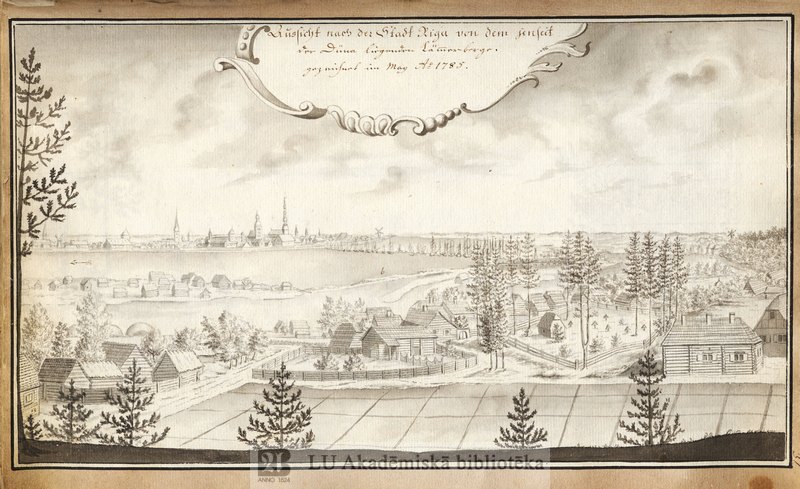 Aussicht nach der Stadt Riga von dem jenseit
der Düna liegenden Lämmerberge.
gezeichnet im May Aº 1785.
b
LU Akadēmiskā bibliotēka
ANNO 1524